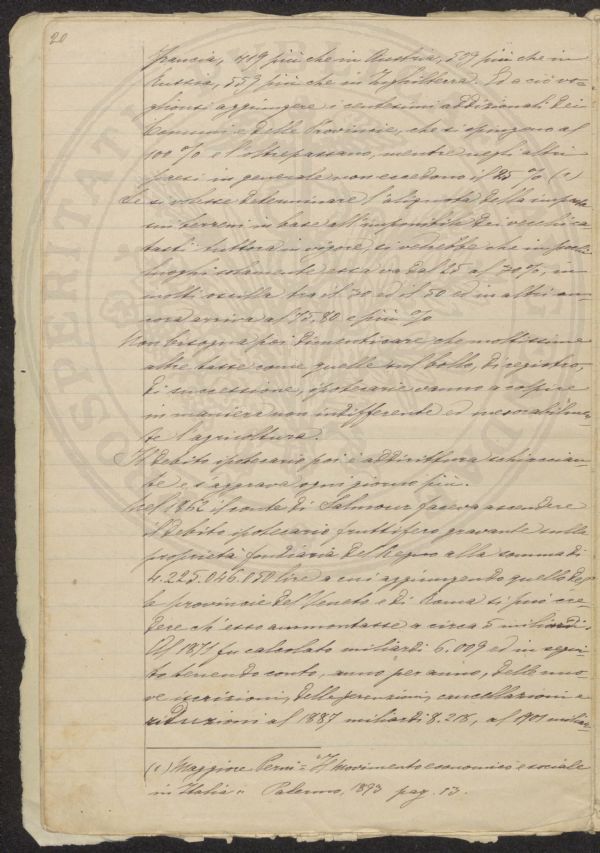 20
Francia, 419 più che in Austria, 509 più che in
Russia, 559 più che in Inghilterra. Ed a ciò vo-
glionsi aggiungere i centesimi addizionali dei
Comuni e delle Provincie, che si spingono al
100 % e l'oltrepassano, mentre negli altri
paesi in generale non eccedono il 25 %. (1)
Se si volesse determinare l'aliquota della imposta
sui terreni in base all'imponibile dei vecchi ca-
tasti tuttora in vigore, si vedrebbe che in pochi
luoghi solamente essa va dal 25 al 30 %, in
molti oscilla tra il 30 ed il 50 ed in altri an-
cora arriva al 75, 80 e più %
Non bisogna poi dimenticare che moltissime
altre tasse come quelle sul bollo, di registro,
di successione, ipotecarie vanno a colpire
in maniera non indifferente ed inesorabilmen-
te l'agricoltura.
Il debito ipotecario poi è addirittura schiaccian-
te e s'aggrava ogni giorno più.
Nel 1862 il conte di Salmour faceva ascendere
il debito ipotecario fruttifero gravante sulla
proprietà fondiaria del Regno alla somma di
4.225.046.050 lire a cui aggiungendo quello del-
le provincie del Veneto e di Roma si può cre-
dere ch'esso ammontasse a circa 5 miliardi.
Al 1871 fu calcolato miliardi 6.009 ed in segui-
to tenendo conto, anno per anno, delle nuo-
ve iscrizioni, delle perenzioni, cancellazioni e
riduzioni al 1887 miliardi 8.218, al 1901 miliar-
(1) Maggiore Perni = "Il Movimento economico e sociale
in Italia" Palermo, 1893 pag. 13.
PROSPERITATI PUBLICAE AUGENDAE